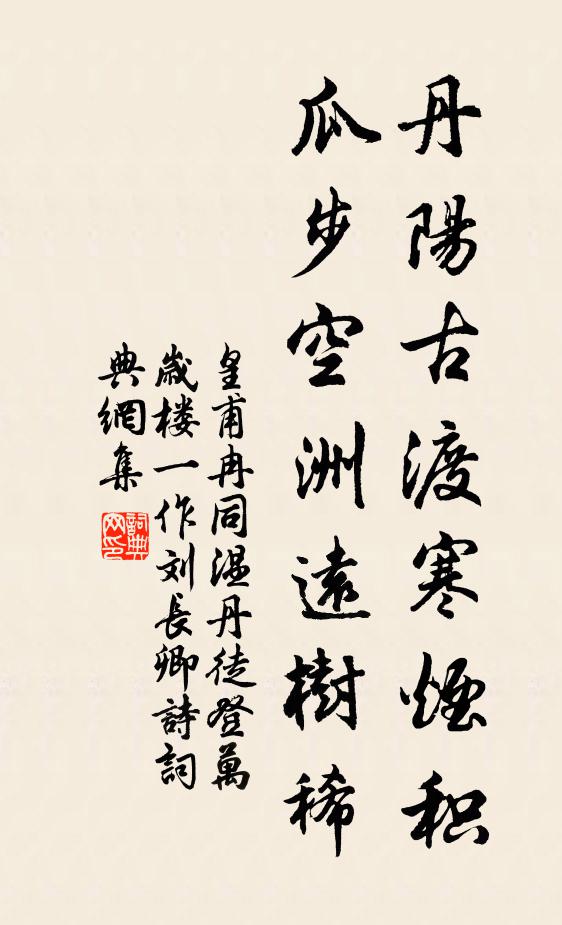 丹陽古渡寒煙积
瓜步空洲遠樹稀
皇甫冉同温丹徒登萬
歲楼一作刘長卿詩詞
典網集
詞典網印